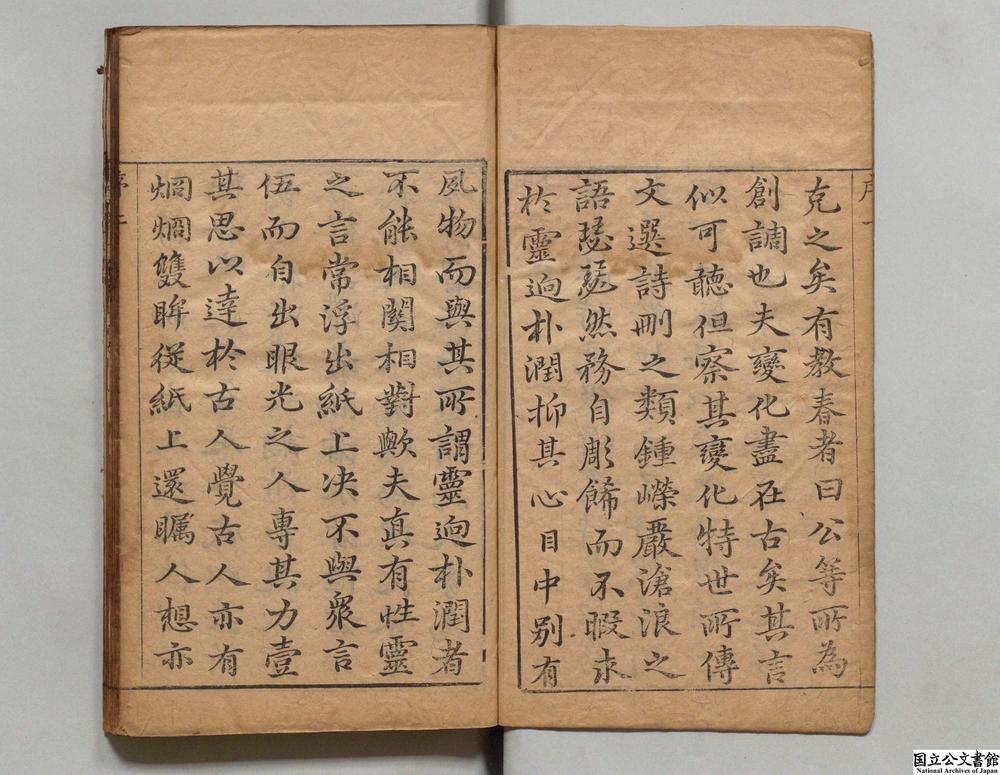 克之矣有教春者曰公等所為
創調也夫變化盡在古矣其言
似可聽但察其變化特世所傳
文選詩刪之類鍾嶸嚴滄浪之
語瑟瑟然務自彫餙而不暇求
於靈迥朴潤抑其心目中別有
風物而與其所謂靈迥朴潤者
不能相關相對歟夫真有性靈
之言常浮出紙上决不與衆言
伍而自出眼光之人專其力壹
其思以達於古人覺古人亦有
烱烱雙眸從紙上還矚人想亦
国立公文書館
National Archives of Japan